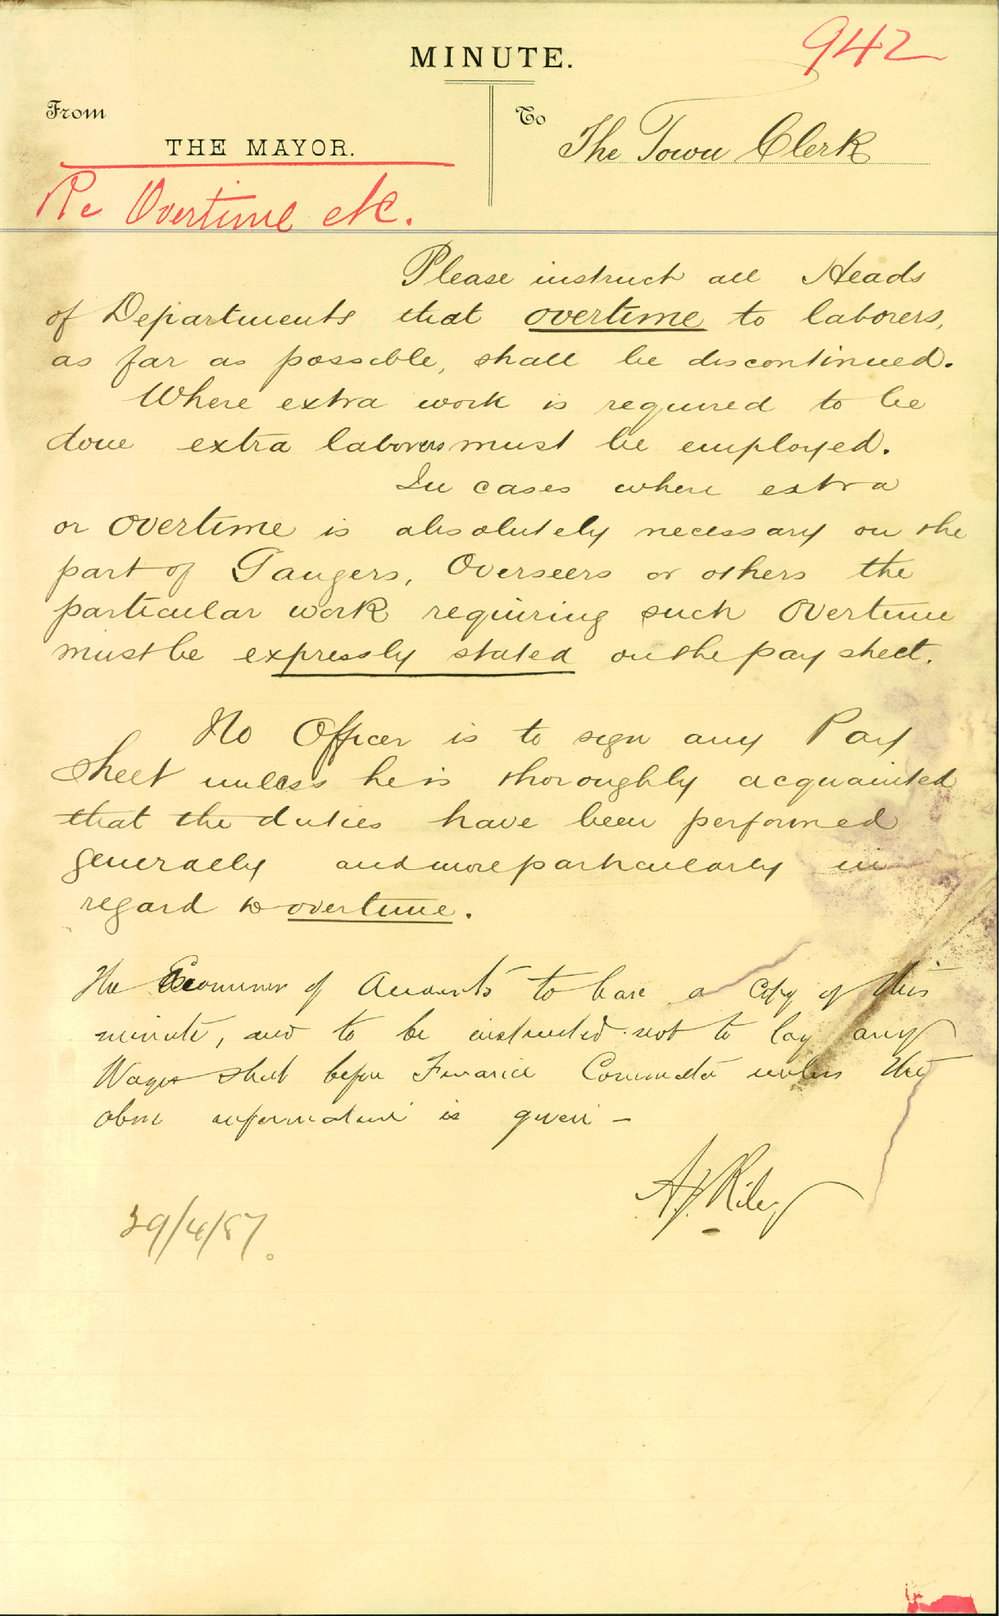 942
MINUTE.
From
To
THE MAYOR.
The Town Clerk
Re Overtime etc.
Please instruct all Heads
of Departments that overtime to laborers,
as far as possible, shall be discontinued.
Where extra work is required to be
done extra laborers must be employed.
In cases where extra
or overtime is absolutely necessary on the
part of Gangers, Overseers or others the
particular work requiring such overtime
must be expressly stated on the pay sheet.
No Officer is to sign any Pay
Sheet unless he is thoroughly acquainted
that the duties have been performed
generally and more particularly in
regard to overtime.
The Examiner of Accounts to have a copy of this
minute, and to be instructed not to lay any
Wages sheet before Finance Committee unless the
above information is given –
A J. Riley
29/4/87.